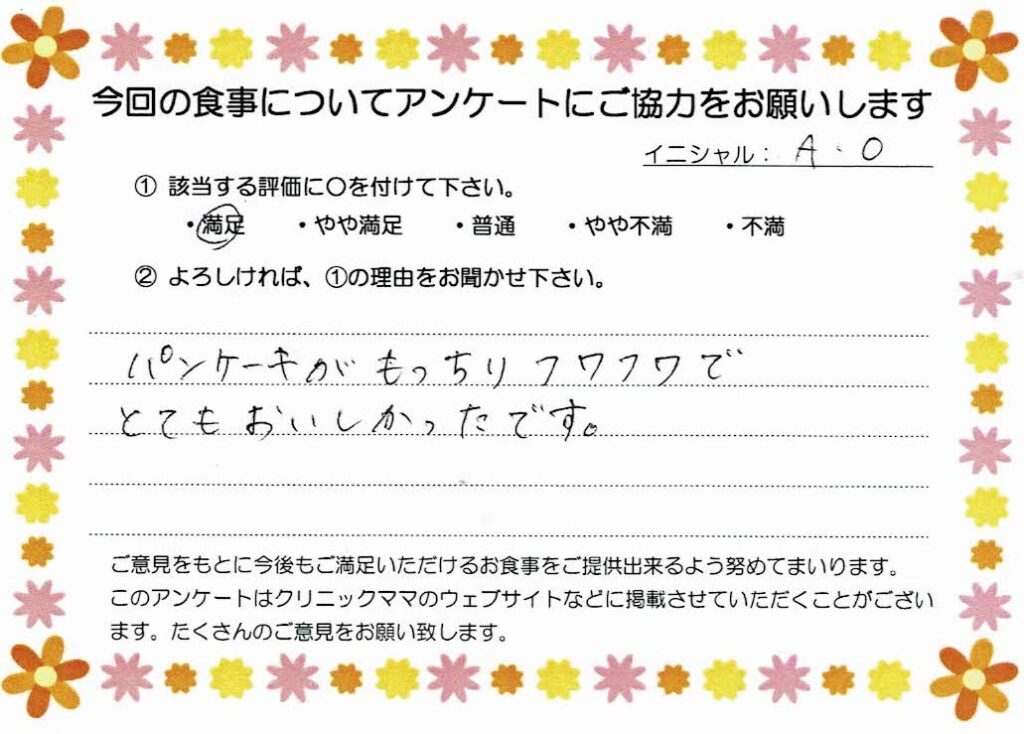 今回の食事についてアンケートにご協力をお願いします
イニシャル： A・O
① 該当する評価に〇を付けて下さい。
・満足 ・やや満足 ・普通 ・やや不満 ・不満
② よろしければ、①の理由をお聞かせ下さい。
パンケーキがもっちりフワフワで
とてもおいしかったです。
ご意見をもとに今後もご満足いただけるお食事をご提供出来るよう努めてまいります。
このアンケートはクリニックママのウェブサイトなどに掲載させていただくことがござい
ます。たくさんのご意見をお願い致します。